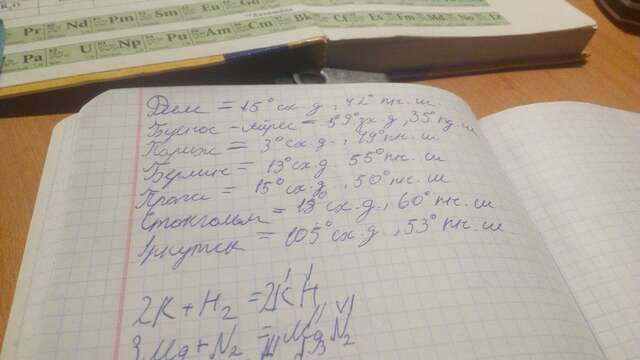 Pr Nd Pm Sm Eu Gd
Pa U Np Pu Am Cm Bk Cf Es Fm Md No
= 15° сх.д, 42° пн.ш.
Буенос-Айрес = 59° зх.д, 35° пд.ш
Париж = 3° сх.д, 49° пн.ш
Берлин = 13° сх.д 55° пн.ш
Прага = 15° сх.д, 50° пн.ш
Стокгольм = 19° сх.д, 60° пн.ш
Іркутск = 105° сх.д, 53° пн.ш
2K + H₂ = 2KH
3Mg + N₂ =